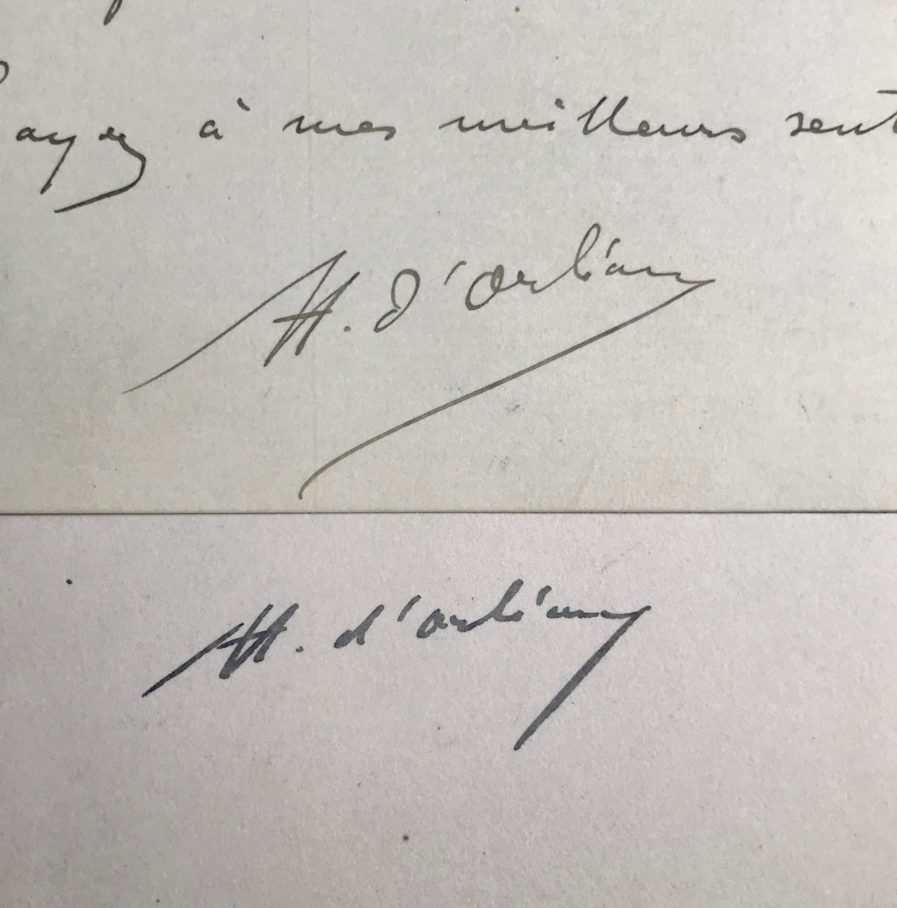 à mes meilleurs sent
H. d'Orléans
H. d'orléans